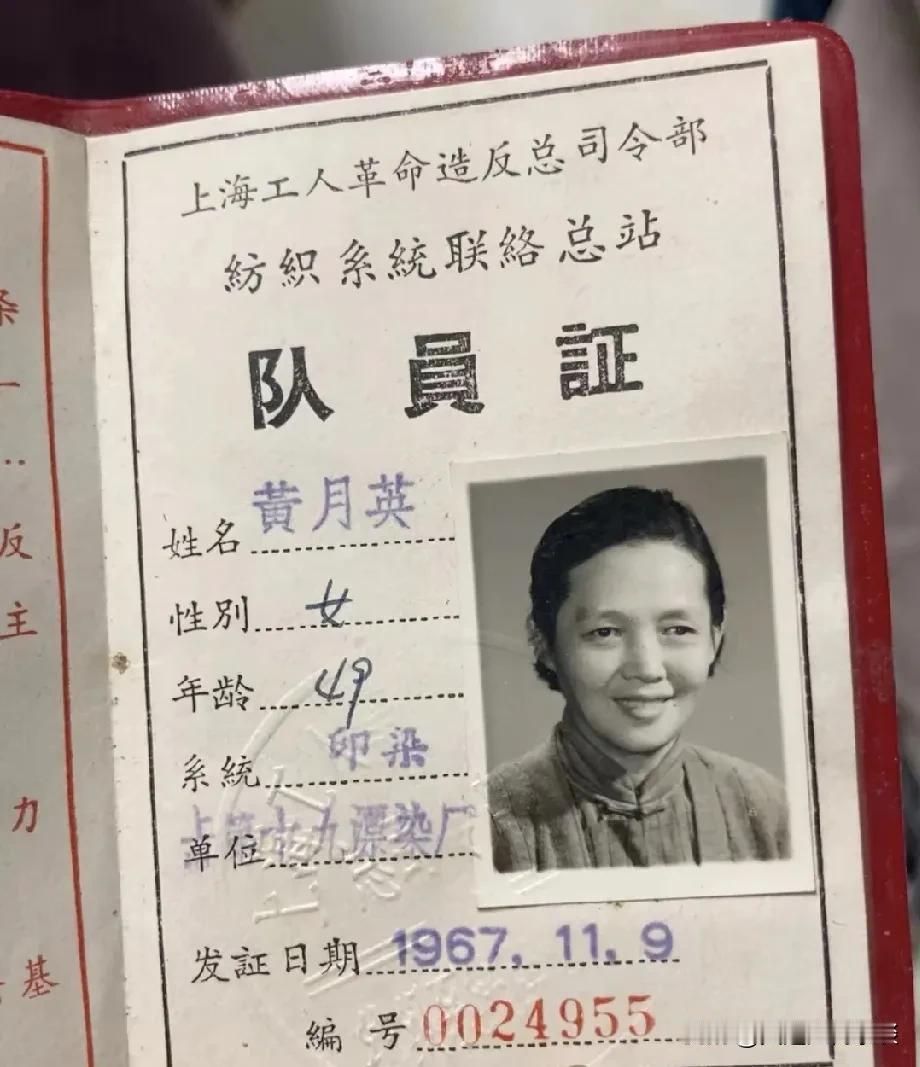 条
一
反
主
力
基
上海工人革命造反总司令部
紡織系統联絡总站
队員証
姓名 黃月英
性別 女
年龄 49
系統 印染
单位 上 十九漂染厂
发証日期 1967.11.9
編号 0024955